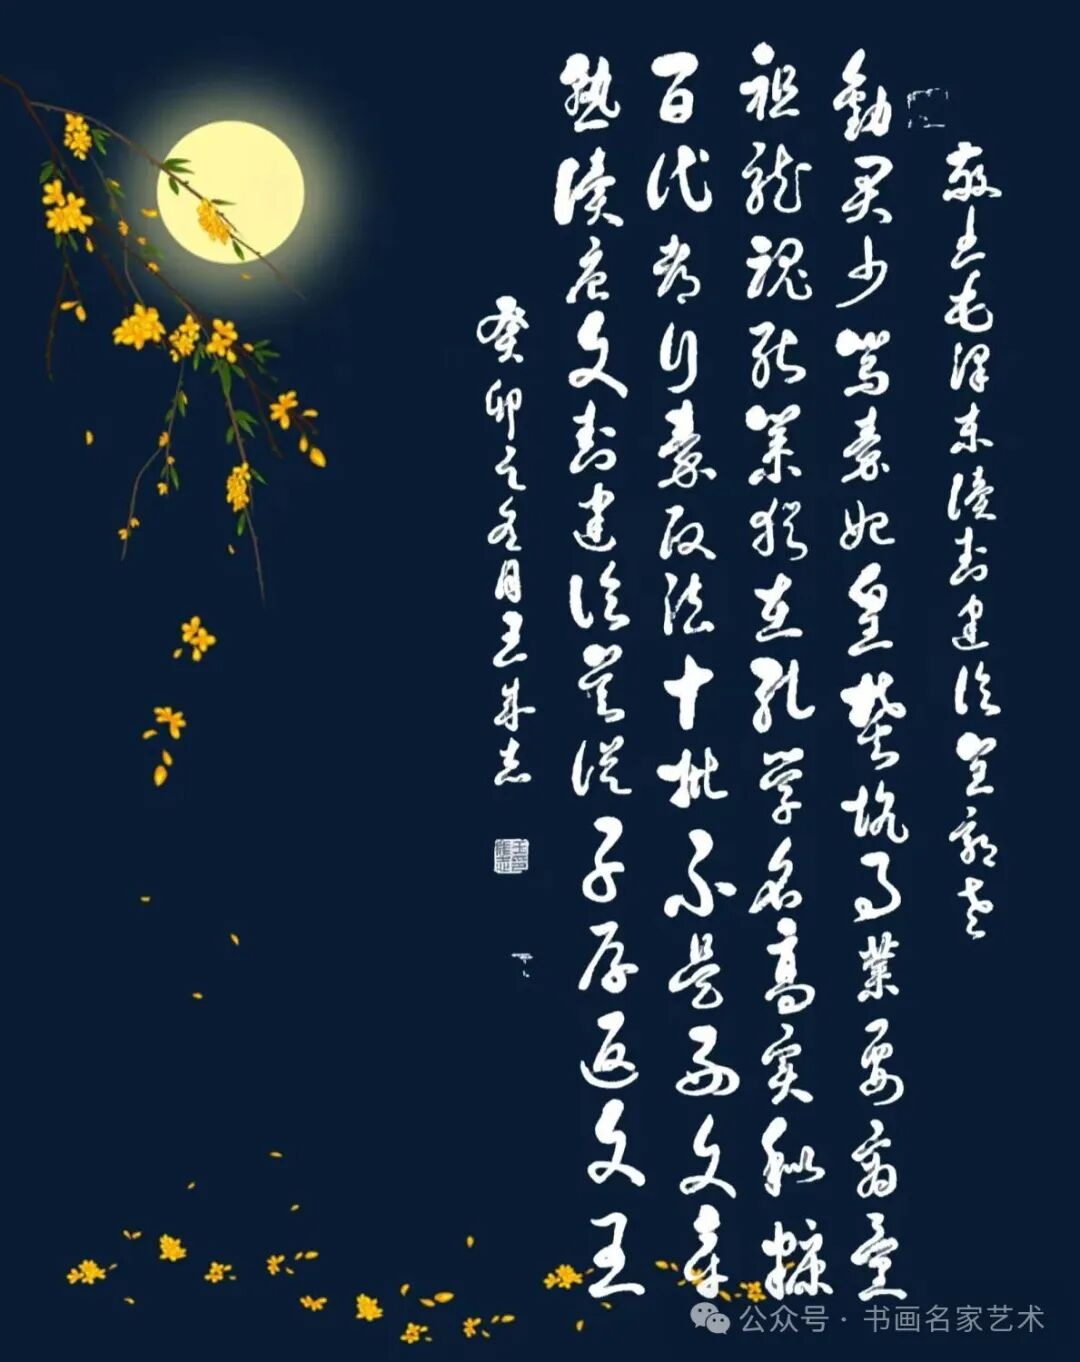 敬书毛泽东读封建论呈郭老
勸君少骂秦始皇焚坑事業要商量
祖龙魂死秦犹在孔学名高实秕糠
百代都行秦政法十批不是好文章
熟读唐人封建论莫从子厚返文王
癸卯之冬月王志
公众号·书画名家艺术